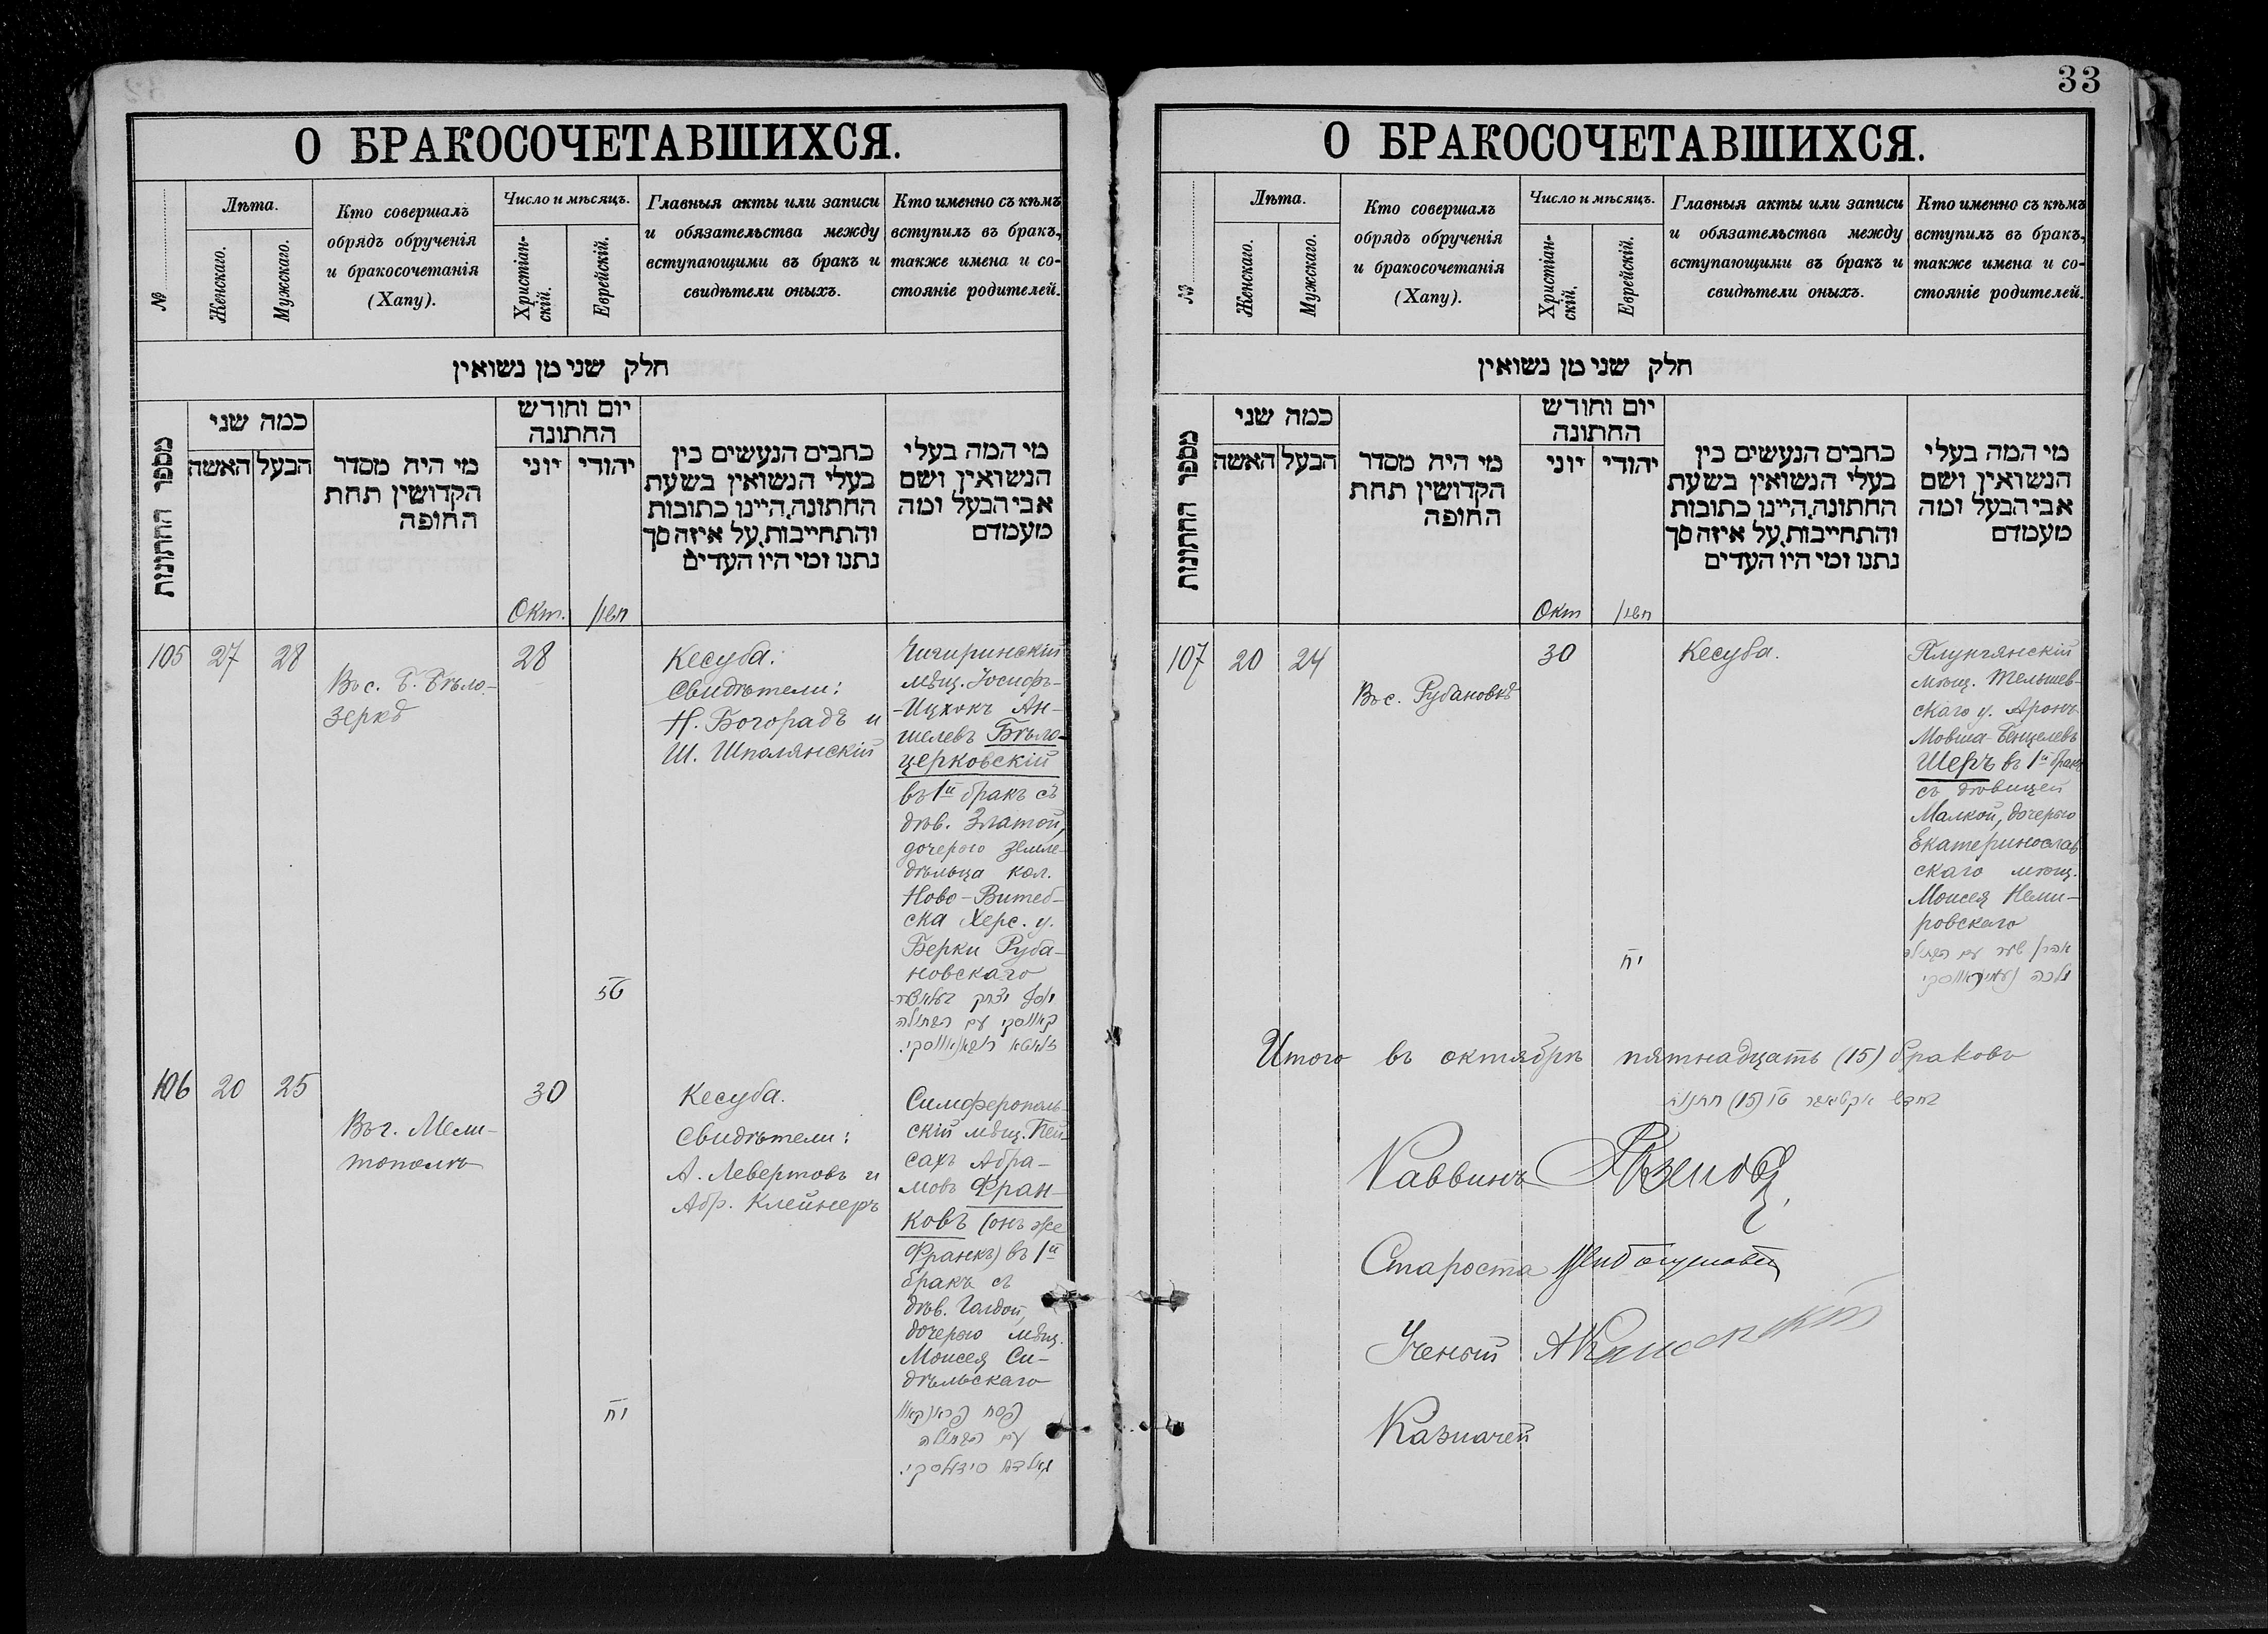 33
О БРАКОСОЧЕТАВШИХСЯ.
№
Лѣта.
Женскаго.
Мужскаго.
Кто совершалъ
обрядъ обрученія
и бракосочетанія
(Хапу).
Число и мѣсяцъ.
Христіан-
скій.
Еврейскій.
Главныя акты или записи
и обязательства между
вступающими въ бракъ и
свидѣтели оныхъ.
Кто именно съ кѣмъ
вступилъ въ бракъ,
также имена и со-
стояніе родителей.
חלק שני מן נשואין
מספר החתונות
כמה שני
האשה
הבעל
מי היה מסדר
הקדושין תחת
החופה
יום וחודש
החתונה
יוני
יהודי
כתבים הנעשים בין
בעלי הנשואין בשעת
החתונה, היינו כתובות
והתחייבות, על איזה סך
נתנו ומי היו העדים
מי המה בעלי
הנשואין ושם
אבי הבעל ומה
מעמדם
Окт.
חשון
105
27
28
Въ с. Б. Бѣло-
зеркѣ
28
טז
Кесуба.
Свидѣтели:
Н. Богорадъ и
Ш. Шполянскій
Чигиринскій
мѣщ. Іосифъ-
-Ицхокъ Ан-
шелевъ Бѣло-
церковскій
въ 1й бракъ съ
дѣв. Златой,
дочерью земле-
дѣльца кол.
Ново-Витеб-
ска Херс. у.
Берки Руба-
новскаго
יוסף יצחק בעלאצער-
קאווסקי עם הבתולה
זלאטא רובאנאווסקי.
106
20
25
Въ г. Мели-
тополѣ
30
יח
Кесуба.
Свидѣтели:
А. Левертовъ и
Абр. Клейнеръ
Симферополь-
скій мѣщ. Пей-
сахъ Абра-
мовъ Фран-
ковъ (онъ же
Франкъ) въ 1й
бракъ съ
дѣв. Голдой,
дочерью мѣщ.
Моисея Си-
дѣльскаго
פסח פראנקאוו
עם הבתולה
גאלדא סידעלסקי.
О БРАКОСОЧЕТАВШИХСЯ.
№
Лѣта.
Женскаго.
Мужскаго.
Кто совершалъ
обрядъ обрученія
и бракосочетанія
(Хапу).
Число и мѣсяцъ.
Христіан-
скій.
Еврейскій.
Главныя акты или записи
и обязательства между
вступающими въ бракъ и
свидѣтели оныхъ.
Кто именно съ кѣмъ
вступилъ въ бракъ,
также имена и со-
стояніе родителей.
חלק שני מן נשואין
מספר החתונות
כמה שני
האשה
הבעל
מי היה מסדר
הקדושין תחת
החופה
יום וחודש
החתונה
יוני
יהודי
כתבים הנעשים בין
בעלי הנשואין בשעת
החתונה, היינו כתובות
והתחייבות, על איזה סך
נתנו ומי היו העדים
מי המה בעלי
הנשואין ושם
אבי הבעל ומה
מעמדם
Окт
חשון
107
20
24
Въ с. Рубановкѣ
30
יח
Кесуба.
Плунгянскій
мѣщ. Тельшев-
скаго у. Аронъ
Мовша-Бенцелевъ
Шеръ въ 1й бракъ
съ дѣвицей
Малкой, дочерью
Екатеринослав
скаго мѣщ.
Моисея Неми-
ровскаго
אהרן שער עם הבתולה
מלכה נעמיראווסקי
Итого въ октябрѣ пятнадцать (15) браковъ
בחדש אקטאבר טו (15) חתונות
Раввинъ
Староста
Ученый
Казначей